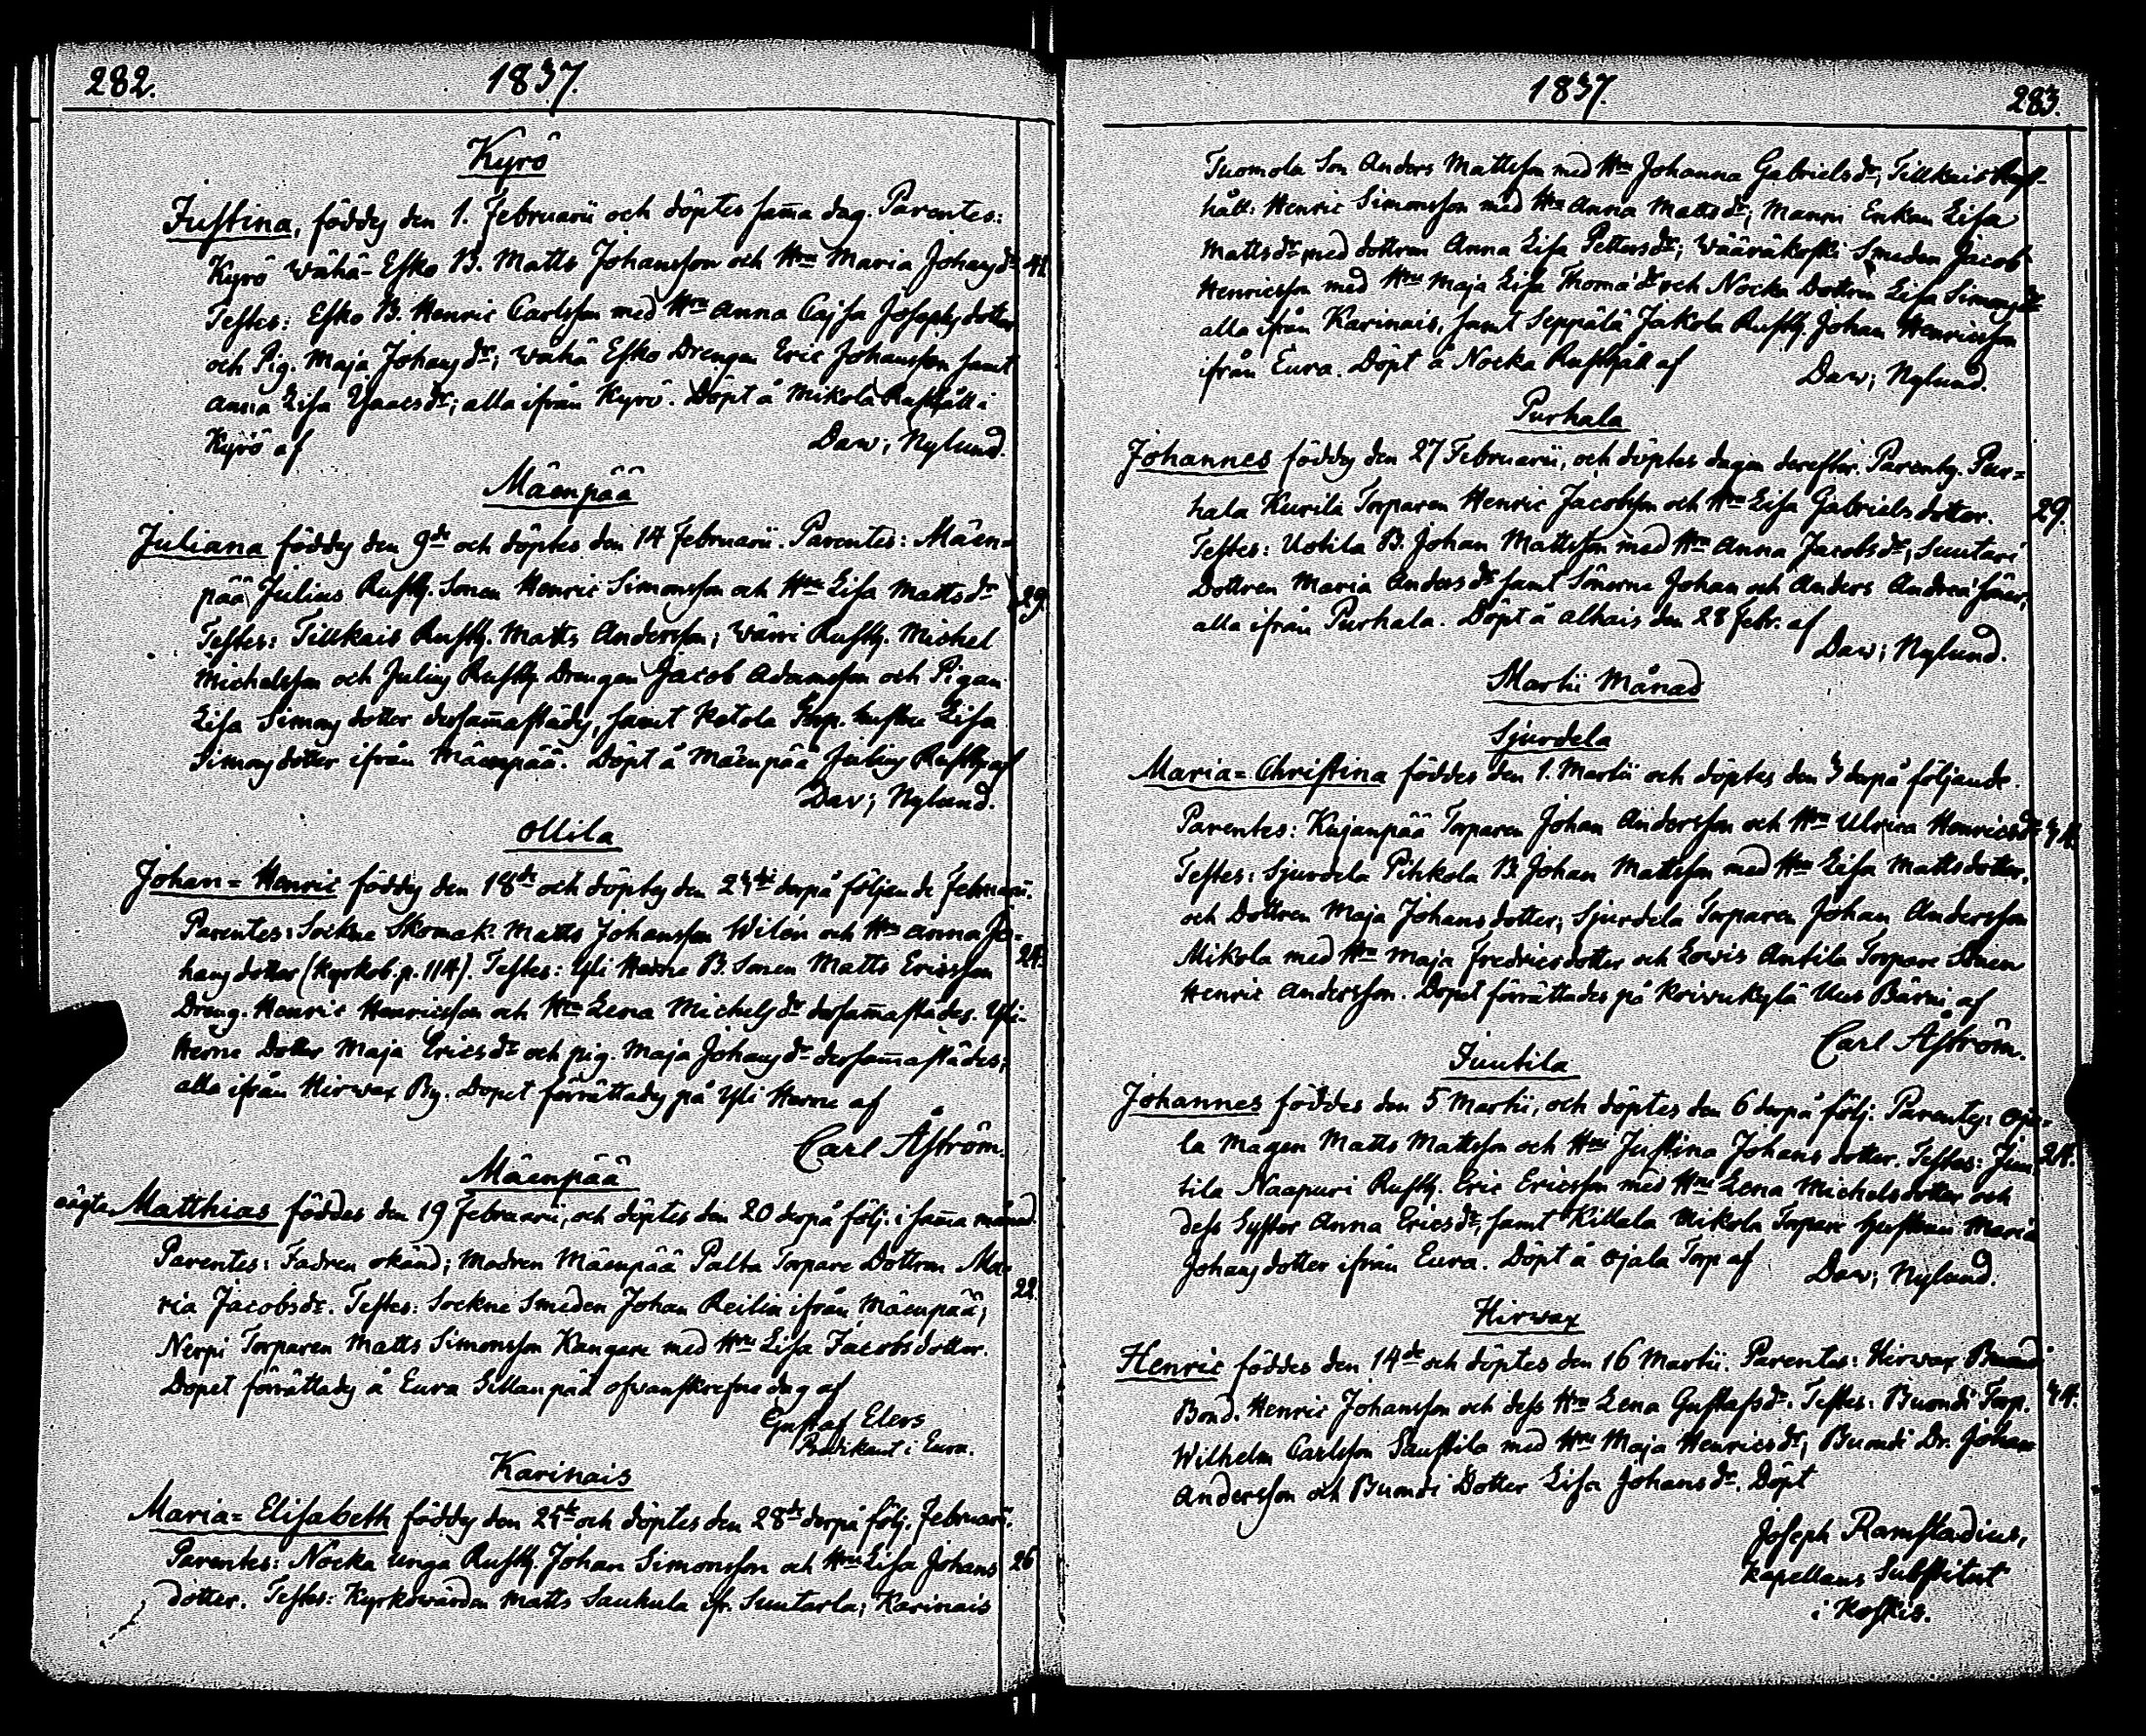 282. 1837.
Kyrö
Justina, föddes den 1. Februarii och döptes sam̅a dag. Parentes:
Kyrö Wähä-Esko B. Matts Johansson och Hru Maria Johansdr 41.
Testes: Esko B. Henric Carlsson med Hru Anna Cajsa Josephsdotter
och Pig. Maja Johansdr; Wähä Esko Drengen Eric Johansson samt
Anna Lisa Ysaacsdr; alla ifrån Kyrö. Döpt å Mikola Rusthåll i
Kyrö af Daw; Nylund.
Mäenpää
Juliana föddes den 9de och döptes den 14 Februarii. Parentes: Mäen-
pää Julius Rusth. Sonen Henric Simonsson och Hru Lisa Mattsdr 29.
Testes: Tillkais Rusth. Matts Andersson; Wärri Rusth. Michel
Michelsson och Julius Rusth. Drengen Jacob Adamsson och Pigan
Lisa Simonsdotter dersam̅astädes, samt Ketola Torp. hustru Lisa
Simonsdotter ifrån Mäenpää. Döpt å Mäenpää Julius Rusth. af
Dav; Nylund.
Ollila
Johan=Henric föddes den 18de och döptes den 24de derpå följande Februarii.
Parentes: Sockne Skomak. Matts Johansson Wilén och Hru Anna Jo-
hansdotter (kyrkob. p. 114). Testes: Yli Herne B. Sonen Matts Ericsson 24.
Dreng. Henric Henricsson och Hru Lena Michelsdr dersam̅astädes. Yli-
Herne Dotter Maja Ericsdr och pig. Maja Johansdr dersam̅astädes;
alla ifrån Hirwax By. Dopet förrättades på Yli Herne af
Carl Åström.
Mäenpää
oägta. Matthias föddes den 19 Februarii, och döptes den 20 derpå följ. i sam̅a månad.
Parentes: Fadren okänd; Modren Mäenpää Palta Torpare Dottren Ma-
ria Jacobsdr. Testes: Sockne Smeden Johan Reilin ifrån Mäenpää; 22.
Nerpi Torparen Matts Simonsson Kangare med Hru Lisa Jacobsdotter.
Dopet förrättades å Eura Sillanpää ofvanskrefne dag af
Gustaf Elers
Predikant i Eura.
Karinais
Maria=Elisabeth föddes den 24de och döptes den 28de derpå följ. Februarii.
Parentes: Nocka unga Rusth. Johan Simonsson och Hru Lisa Johans 26
dotter. Testes: Kyrkowärden Matts Saukula ifr. Suutarla; Karinais
1837. 283.
Tuomola Son Anders Mattsson med Hru Johanna Gabrielsdr; Tillkais Rust-
håll: Henric Simonsson med Hru Anna Mattsdr; Manni Enkan Lisa
Mattsdr med dottren Anna Lisa Pettersdr; Wääräkoski Smeden Jacob
Henricsson med Hru Maja Lisa Thomædr och Nocka Dottren Lisa Simonsdr
alla ifrån Karinais, samt Seppälä Jakola Rusth. Johan Henricsson
ifrån Eura. Döpt å Nocka Rusthåll af Daw; Nylund.
Purhala
Johannes föddes den 27 Februarii, och döptes dagen derefter. Parentes. Pur=
hala Kurila Torparen Henric Jacobsson och Hru Lisa Gabrielsdotter. 29.
Testes: Uotila B. Johan Mattsson med Hru Anna Jacobsdr; Suutari
Dottren Maria Andersdr samt Sönerne Johan och Anders Andreæ Söner;
alla ifrån Purhala. Döpt å Alhais den 28 Febr. af
Daw; Nylund.
Martii Månad
Sjurdela
Maria=Christina föddes den 1. Martii och döptes den 3 derpå följande.
Parentes: Kujanpää Torparen Johan Andersson och Hru Ulrica Henricsdr 41.
Testes: Sjurdela Pihkola B. Johan Mattsson med Hru Lisa Mattsdotter,
och Dottren Maja Johansdotter; Sjurdela Torparen Johan Andersson
Mikola med Hru Maja Fredricsdotter och Lowis Antila Torpare Sonen
Henric Andersson. Dopet förrättades på Koivukylä Uus Bärni af
Carl Åström.
Juutila
Johannes föddes den 5 Martii, och döptes den 6 derpå följ: Parentes: Oja-
la Magen Matts Mattsson och Hru Justina Johansdotter. Testes: Juu- 24.
tila Naapuri Rusth. Eric Ericsson med Hru Lena Michelsdotter och
dess Syster Anna Ericsdr, samt Killala Mikola Torpare hustrun Maria
Johansdotter ifrån Eura. Döpt å Ojala Torp af Daw; Nylund.
Hirwax
Henric föddes den 14de och döptes den 16 Martii. Parentes: Hirwax Buondi
Bond. Henric Johansson och dess Hru Lena Gustafsdr. Testes: Buondi Torp. 41.
Wilhelm Carlsson Saustila med Hru Maja Henricsdr; Buondi Dr. Johan
Andersson och Buondi Dotter Lisa Johansdr. Döpt
Joseph Ramstadius,
Kapellans Substitut
i Koskis.